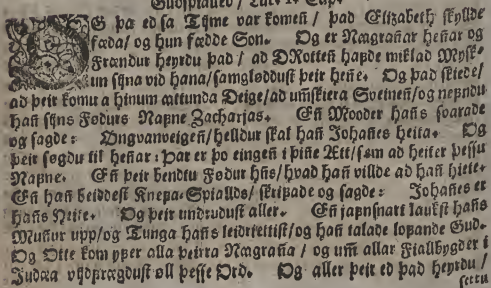 Guðspialled / Luc. 1. Cap.
OG þa ed sa Tijme var komeñ / þad Elizabeth skyllde
fæda/ og hun fædde Son. Og er Nægrañar heñar og
Frændur heyrdu þad / ad DRotteñ hapde miklad Mysk-
un sijna vid hana/samglǫddust þeir heñe. Og þad skiede/
ad þeir komu a hinum aattunda Deige/ad umskiera Sveineñ/og nepndu
hañ sijns Fǫdurs Napne Zacharjas. Eñ Mooder hañs svarade
og sagde: Øngvanveigeñ/helldur skal hañ Johañes heita. Og
þeir sǫgdu til heñar: Þar er þo eingeñ i þiñe Ætt/sem ad heiter þessu
Napne. Eñ þeir bendtu Fǫdur hñs/hvad hañ villde ad hañ hiete.
Eñ hañ beiddest Knepa-Spiallds/ skripade og sagde: Johañes er
hañs Heite. Og þeir undrudust aller. Eñ japnsnart laukst hañs
Muñur upp/og Tunga hañs leidrettist/og hañ talade lopande Gud.
Og Otte kom yper alla þeirra Nægraña / og um allar Fiallbygder i
Judæa vijdprægdust ǫll þesse Ord. Og aller þeir ed þad heyrdu /
settu